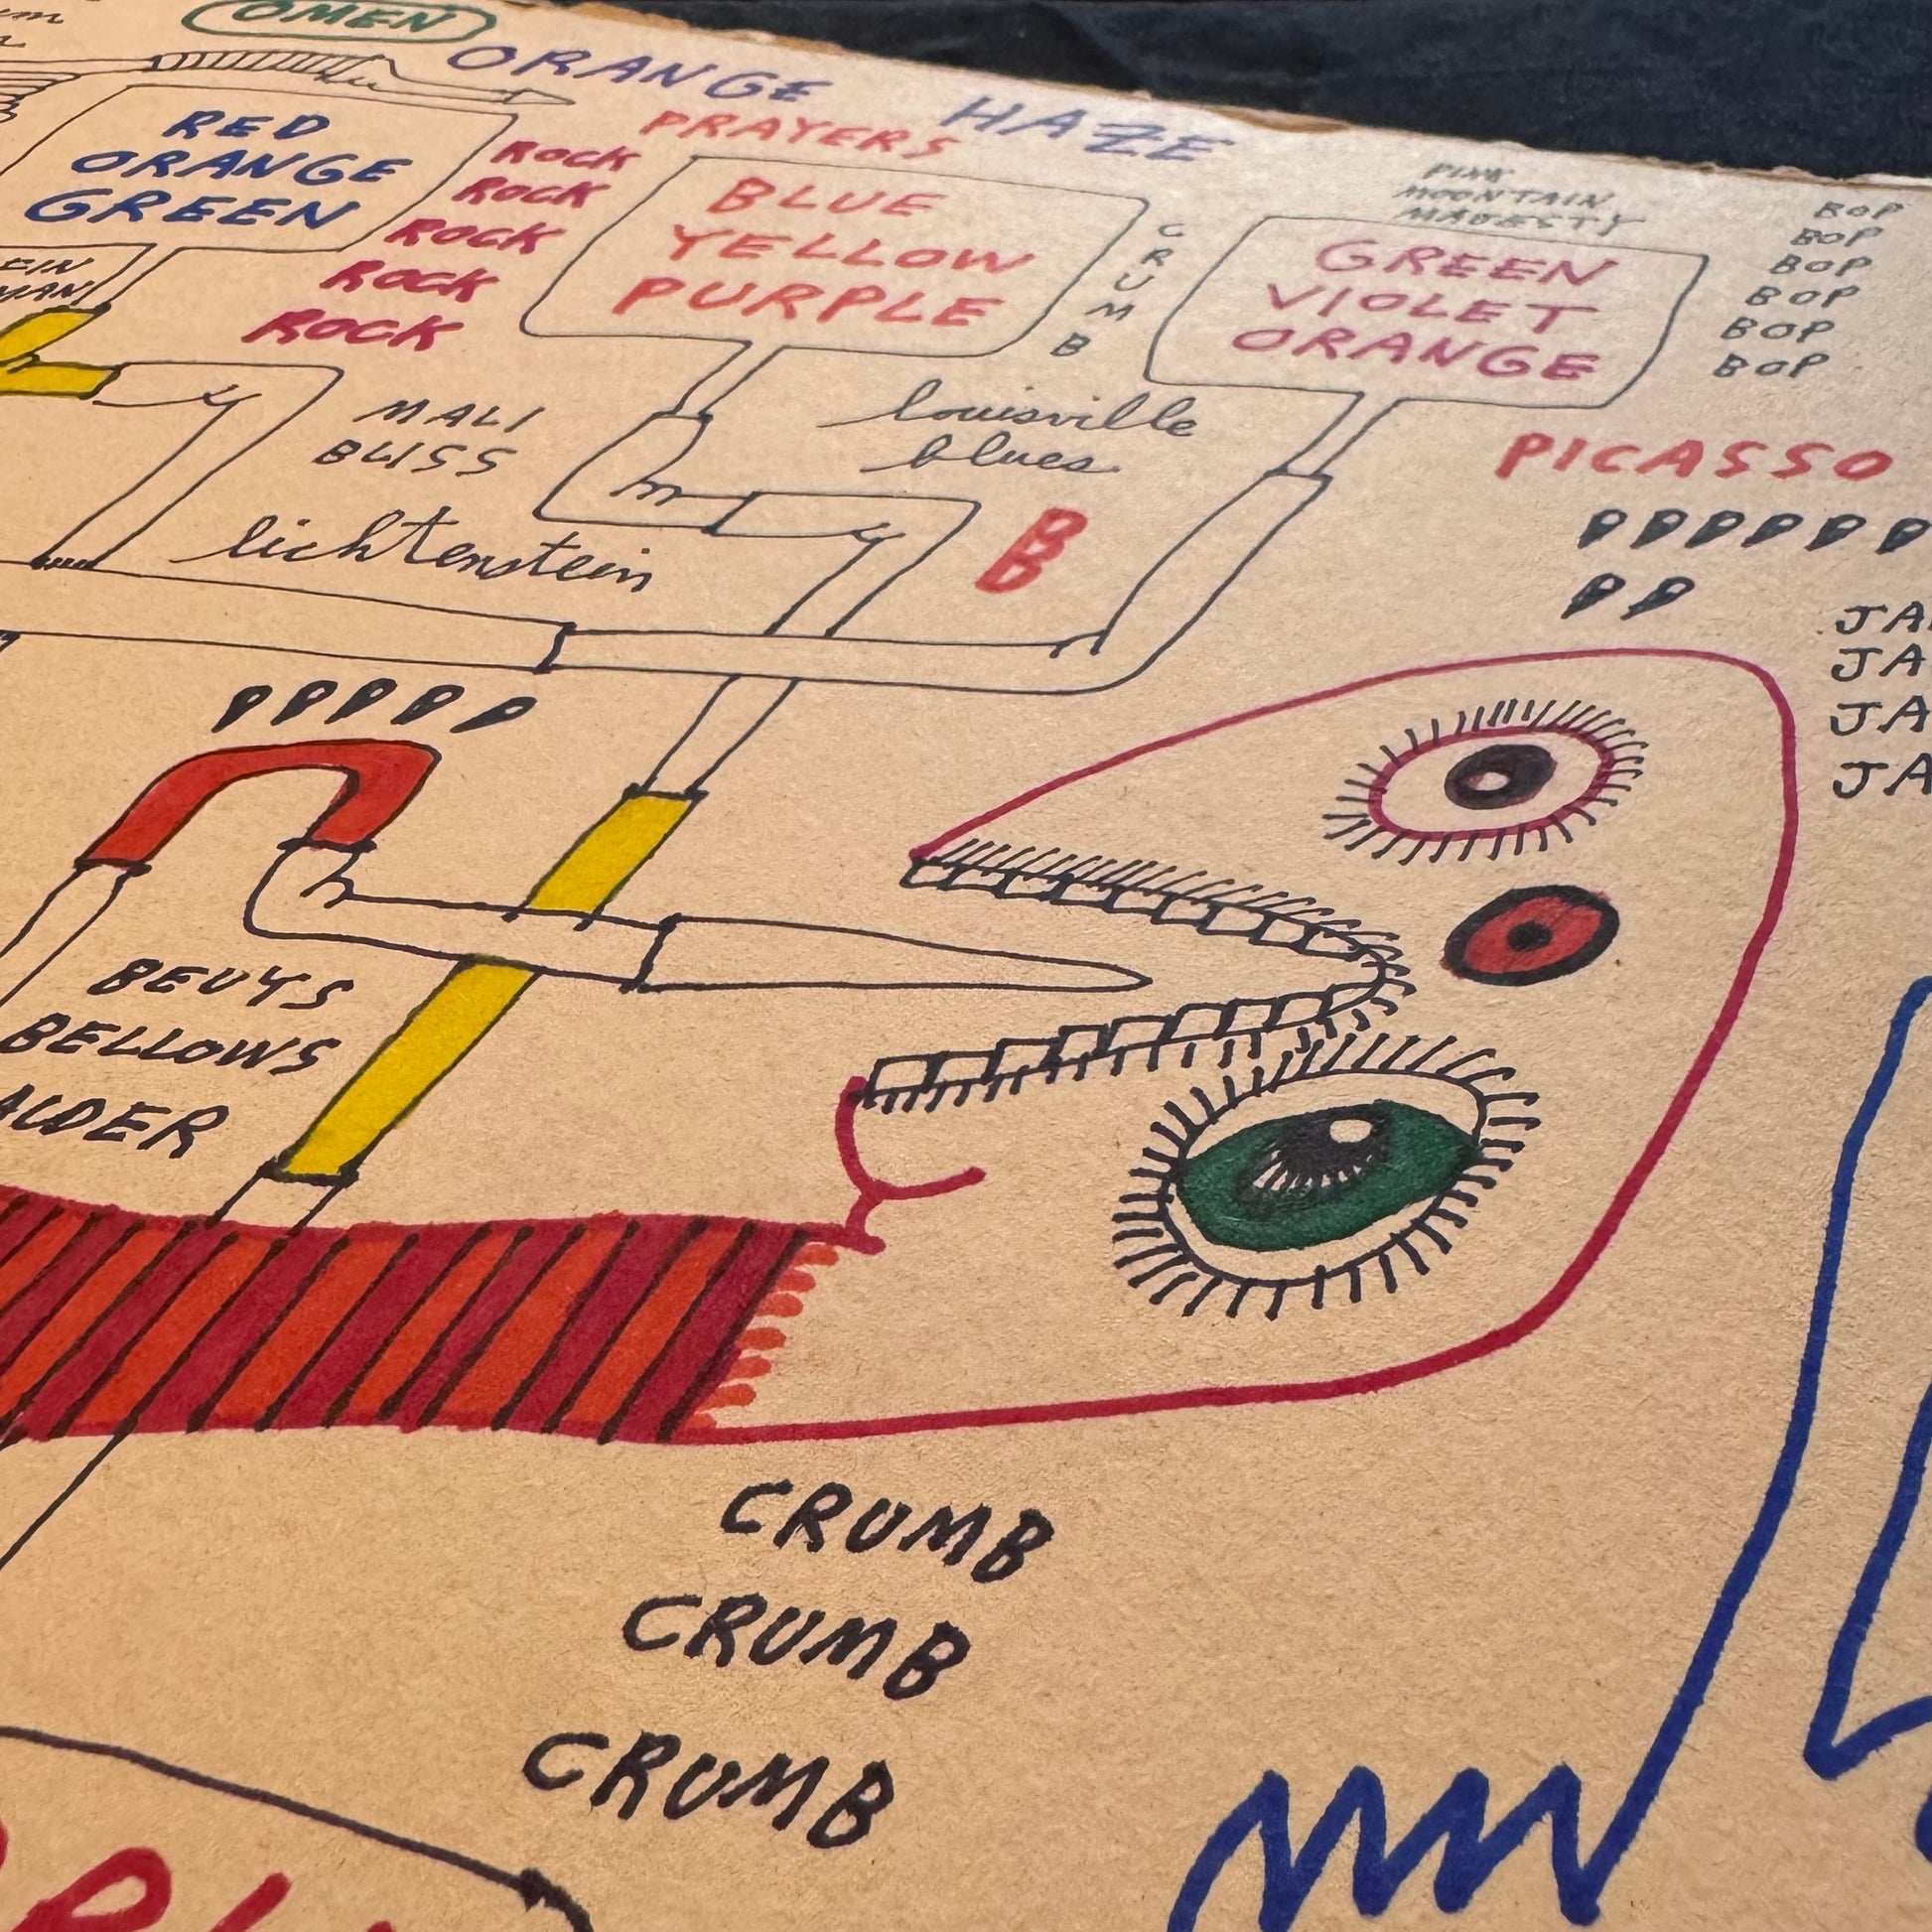 OMEN
ORANGE HAZE
PRAYERS
RED
ORANGE
GREEN
ROCK
ROCK
ROCK
ROCK
ROCK
BLUE
YELLOW
PURPLE
CRUMB
PINK
MOUNTAIN
MAJESTY
GREEN
VIOLET
ORANGE
BOP
BOP
BOP
BOP
BOP
BOP
EIN
MAN
MALI
BLISS
louisville
blues
lichtenstein
B
PICASSO
PPPPPP
PP
JA
JA
JA
JA
PPPPP
BEUYS
BELLOWS
ALDER
CRUMB
CRUMB
CRUMB